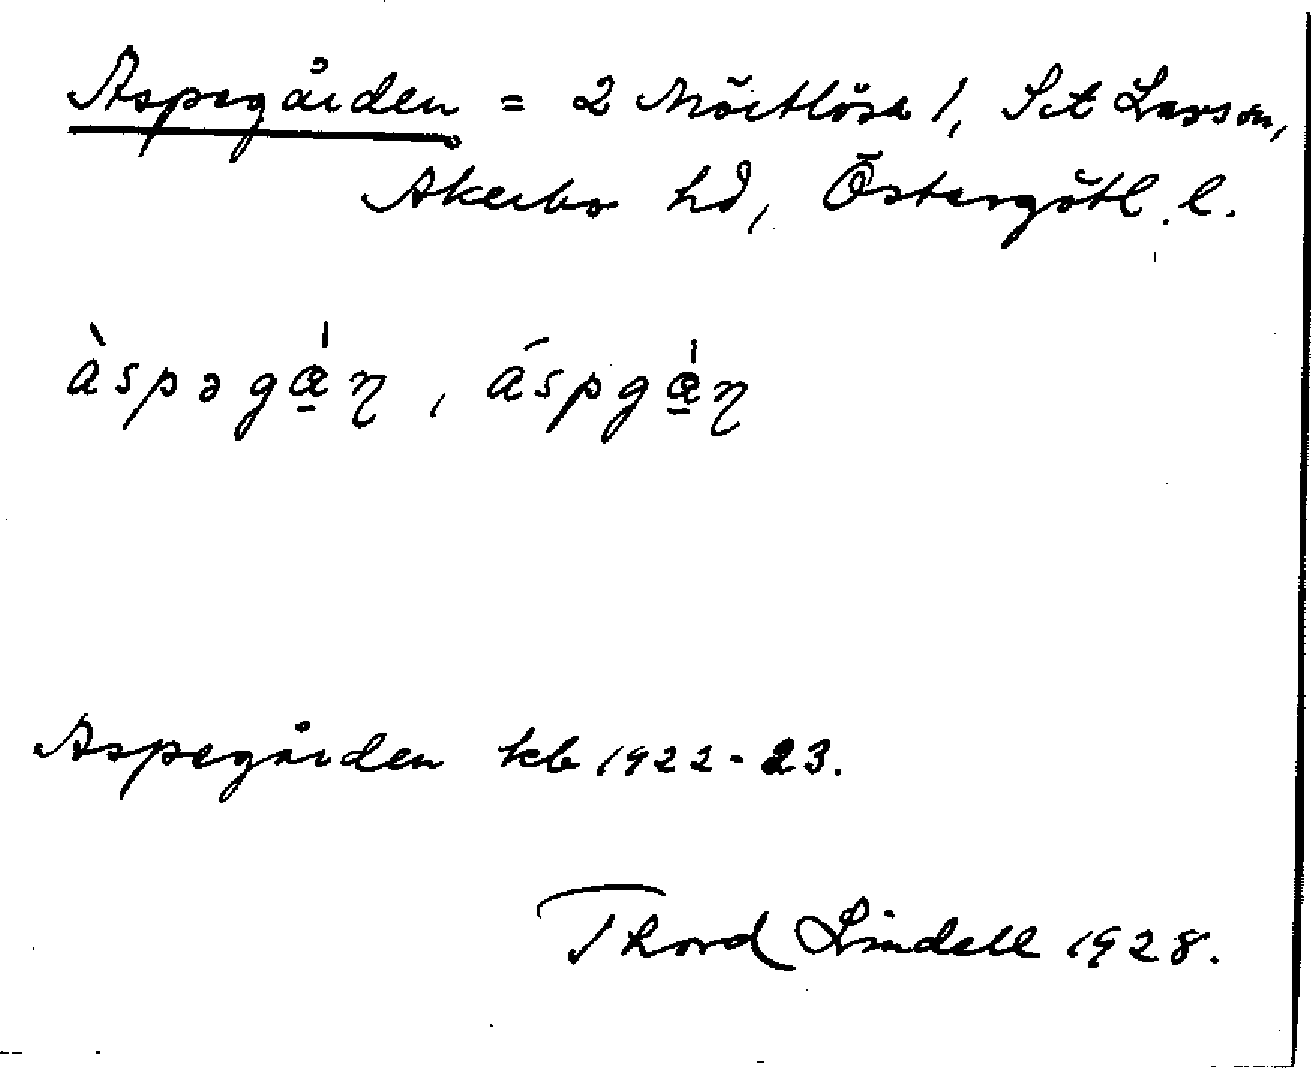 Aspegården = 2 Mörtlösa 1, S:t Lars sn,
Åkerbo hd, Östergötl. l.
àspəgǽ̱η, áspgǽ̱η
Aspegården kb 1922-23.
Thord Lindell 1928.